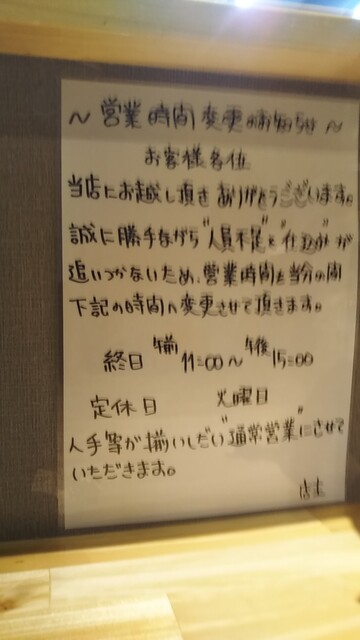 ～営業時間変更のお知らせ～
お客様各位
当店にお越し頂きありがとうございます。
誠に勝手ながら"人員不足"と"仕込み"が
追いつかないため、営業時間を当分の間
下記の時間へ変更させて頂きます。
終日 午前11:00～午後15:00
定休日 火曜日
人手等が揃いしだい"通常営業"にさせて
いただきます。
店主